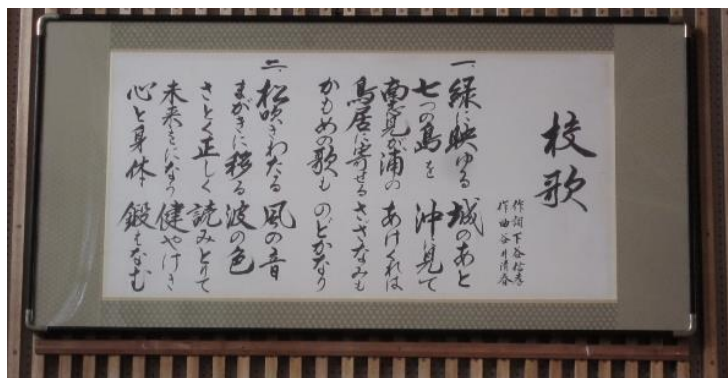 校歌
作詞 下谷信孝
作曲 谷井清春
一、緑に映ゆる 城のあと
七つの島を 沖に見て
南志見が浦の あけくれは
鳥居に寄せる さざなみも
かもめの歌も のどかなり
二、松吹きわたる 風の音
まがきに移る 波の色
さとく正しく 読みとりて
未来をになう 健やけき
心と身体 鍛えなむ